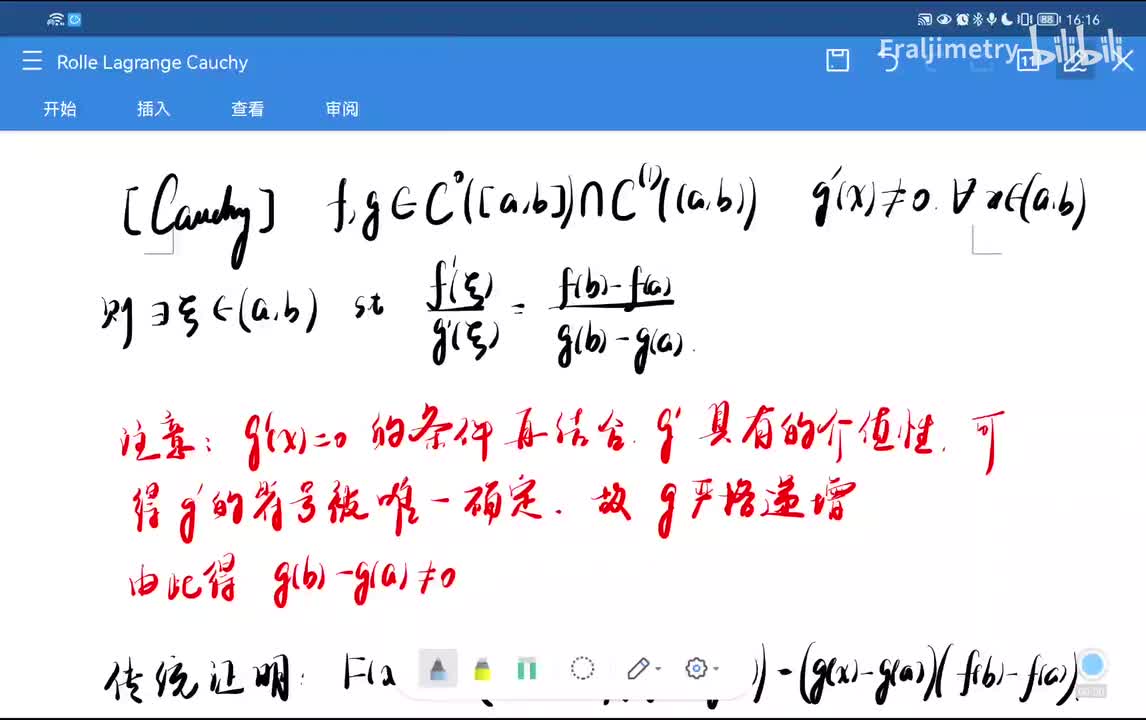 88 16:16
Rolle Lagrange Cauchy
Eraljimetry bilibili
11
开始 插入 查看 审阅
[Cauchy] f,g∈C⁰([a,b])∩C⁽¹⁾((a,b)) g'(x)≠0. ∀x∈(a,b)
则∃ξ∈(a,b) st f'(ξ)/g'(ξ) = (f(b)-f(a))/(g(b)-g(a)).
注意: g'(x)=0 的条件再结合 g' 具有的介值性, 可
得 g' 的符号被唯一确定. 故 g 严格递增
由此得 g(b)-g(a)≠0
传统证明: F(x )-(g(x)-g(a))(f(b)-f(a)).
00:00